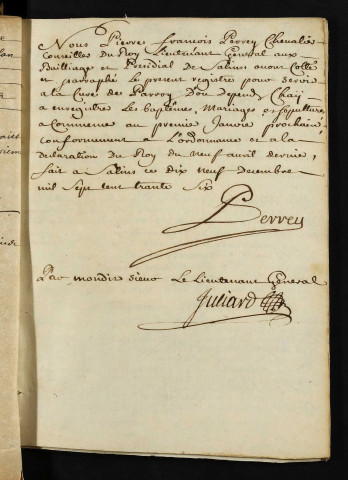 Nous Pierre François Perrey Chevalier
Conseiller du Roy Lieutenant General aux
Bailliage et Presidial de Salins avons Cotté
et paraphé Le present registre pour servir
a la Cure de Parroy D'ou depend Chaij
a enregistrer Les baptêmes, Mariages et sepultures
a Commencer au premier Janvie prochain,
conformement a L'ordonnance et a la
declaration du Roy du neuf avril dernier,
fait a Salins ce dix neuf decembre
mil sept cent trante six
Perrey
Par mondit sieur Le Lieutenant General
Juliard